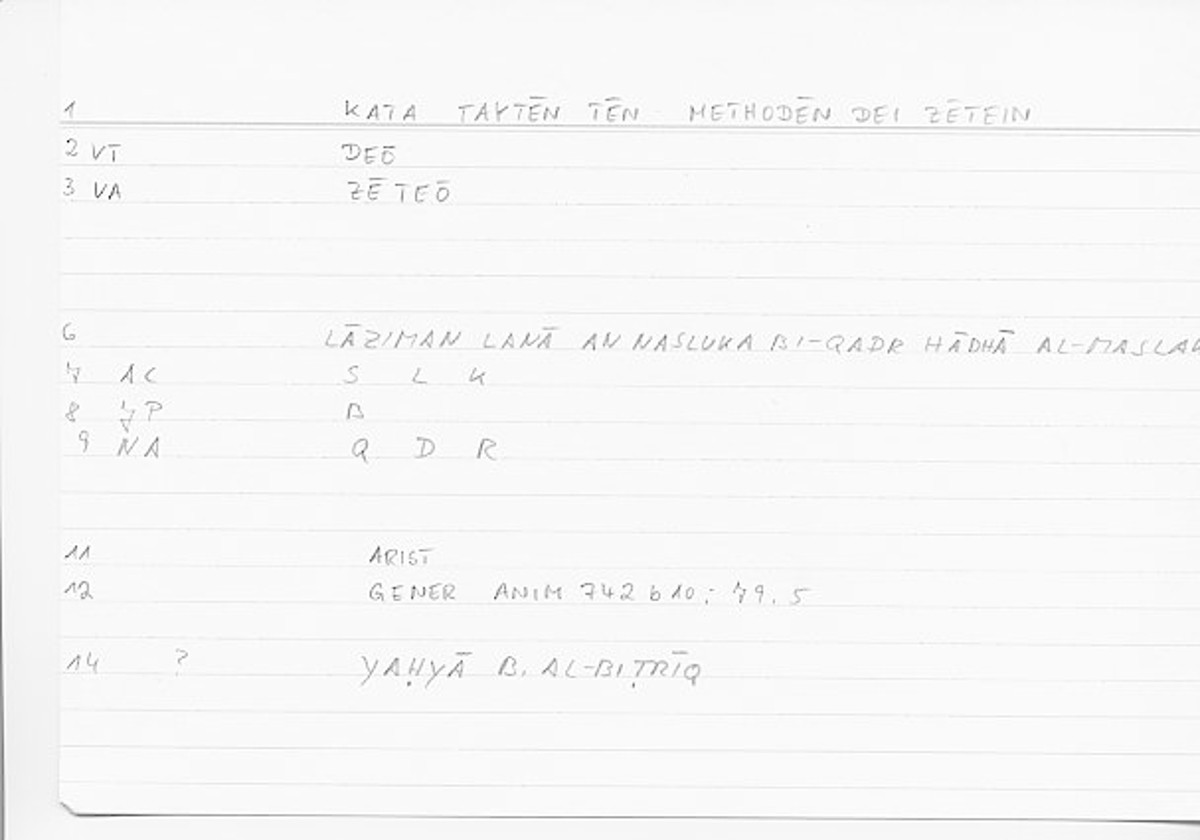 1 KATA TAYTĒN TĒN METHODĒN DEI ZĒTEIN
2 VT DEŌ
3 VA ZĒTEŌ
6 LĀZIMAN LANĀ AN NASLUKA BI-QADR HĀDHĀ AL-MASLAK
7 AC S L K
8 7P B
9 NA Q D R
11 ARIST
12 GENER ANIM 742 b 10; 79.5
14 ? YAḤYĀ B. AL-BIṬRĪQ